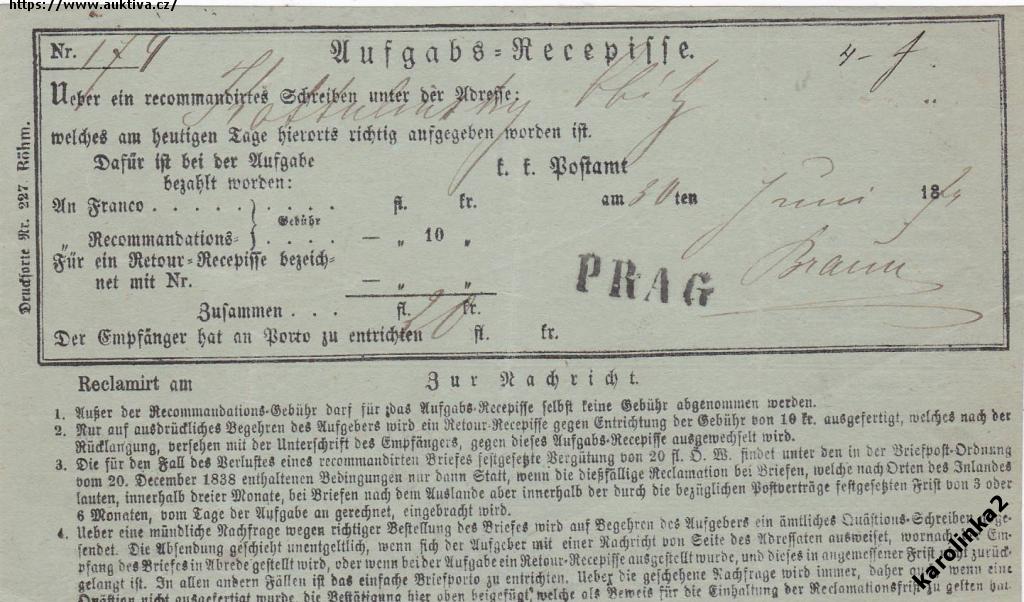 https://www.auktiva.cz/
Nr. 179
Aufgabs=Recepisse.
Ueber ein recommandirtes Schreiben unter der Adresse:
welches am heutigen Tage hierorts richtig aufgegeben worden ist.
Dafür ist bei der Aufgabe
bezahlt worden:
k. k. Postamt
am 30ten Juni 18
An Franco . . . . . . . . . . fl. kr.
Gebühr
„ Recommandations= . . . . — „ 10 „
Für ein Retour=Recepisse bezeich-
net mit Nr. — „ „
PRAG
Braun
Zusammen . . . fl. 20 kr.
Der Empfänger hat an Porto zu entrichten fl. kr.
Drucksorte Nr. 227. Röhm.
Reclamirt am
Zur Nachricht.
1. Außer der Recommandations-Gebühr darf für das Aufgabs-Recepisse selbst keine Gebühr abgenommen werden.
2. Nur auf ausdrückliches Begehren des Aufgebers wird ein Retour-Recepisse gegen Entrichtung der Gebühr von 10 kr. ausgefertigt, welches nach der
Rücklangung, versehen mit der Unterschrift des Empfängers, gegen dieses Aufgabs-Recepisse ausgewechselt wird.
3. Die für den Fall des Verlustes eines recommandirten Briefes festgesetzte Vergütung von 20 fl. Ö. W. findet unter den in der Briefpost-Ordnung
vom 20. December 1838 enthaltenen Bedingungen nur dann Statt, wenn die dießfällige Reclamation bei Briefen, welche nach Orten des Inlandes
lauten, innerhalb dreier Monate, bei Briefen nach dem Auslande aber innerhalb der durch die bezüglichen Postverträge festgesetzten Frist von 3 oder
6 Monaten, vom Tage der Aufgabe an gerechnet, eingebracht wird.
4. Ueber eine mündliche Nachfrage wegen richtiger Bestellung des Briefes wird auf Begehren des Aufgebers ein ämtliches Quästions-Schreiben
sendet. Die Absendung geschieht unentgeltlich, wenn sich der Aufgeber mit einer Nachricht von Seite des Adressaten ausweiset, wornach
pfang des Briefes in Abrede gestellt wird, oder wenn bei der Aufgabe ein Retour-Recepisse ausgestellt wurde, und dieses in angemessener Frist nicht zurück-
gelangt ist. In allen andern Fällen ist das einfache Briefporto zu entrichten. Ueber die geschehene Nachfrage wird immer, daher auch wenn eine
Quästion nicht ausgefertigt wurde, die Bestätigung hier oben beigefügt, welche als Beweis für die Einhaltung der Reclamationsfrist zu gelten hat.
karolinka2